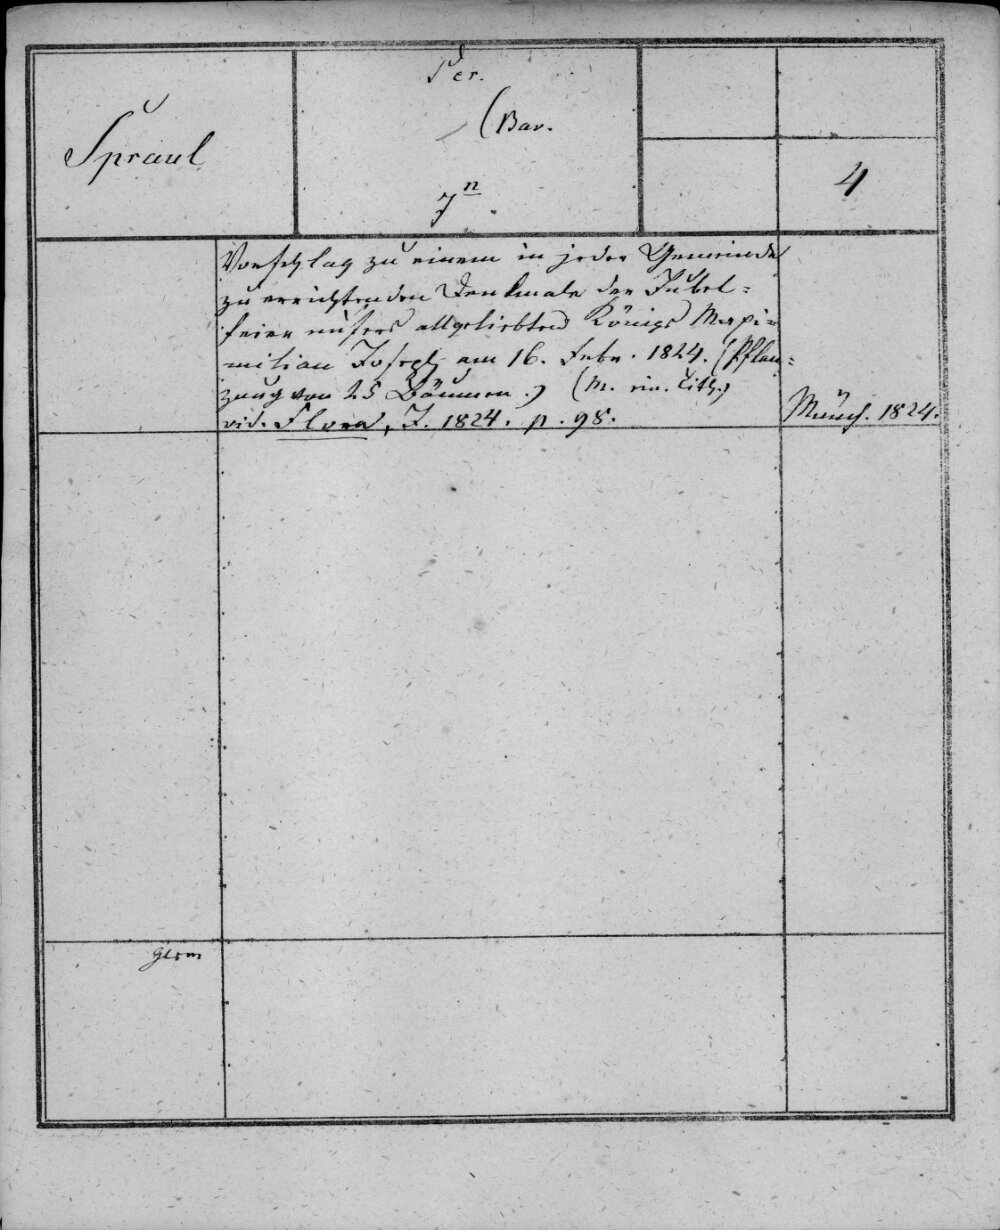 Per.
(Bav.
Spraul
4
7n.
Vorschlag zu einem in jeder Gemeinde
zu errichtenden Denkmale der Jubel-
feier unsers allgeliebten Königs Maxi-
milian Joseph am 16. Febr. 1824. (Pflan-
zung von 25 Bäumen.) (M. ein. Lith.)
vid. Flora, J. 1824. p. 98.
Münch. 1824.
Germ